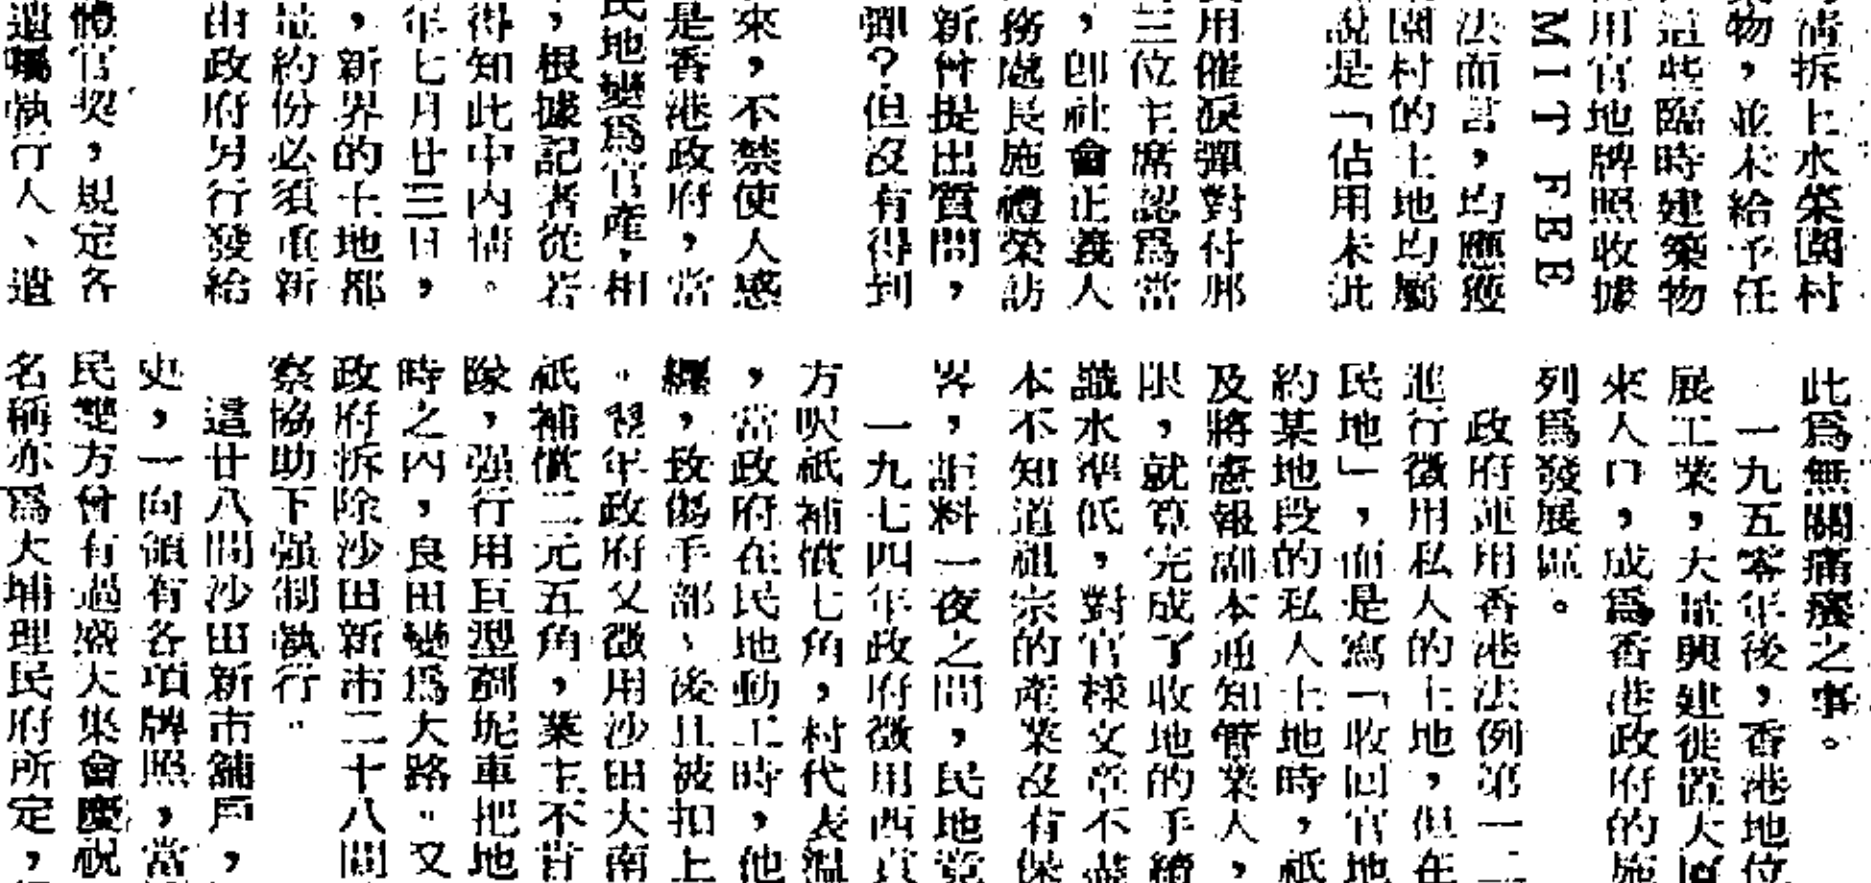 清拆上水榮園村
物，並未給予任
這些臨時建築物
用官地牌照收據
MIT FEE
法而言，均應獲
園村的土地均屬
說是「佔用未批
用催淚彈對付那
三位主席認爲當
，卽社會正義人
務處長施禮榮訪
新曾提出質問，
彈？但沒有得到
來，不禁使人感
是香港政府，當
民地變爲官產，相
，根據記者從若
得知此中內情。
年七月廿三日，
，新界的土地都
量約份必須重新
由政府另行發給
體官契，規定各
遺囑執行人、遺
此爲無關痛癢之事。
一九五零年後，香港地位
展工業，大量興建徙置大廈
來人口，成爲香港政府的施
列爲發展區。
政府運用香港法例第一二
進行徵用私人的土地，但在
民地」，而是寫「收回官地
約某地段的私人土地時，祇
及將憲報副本通知管業人，
限，就算完成了收地的手續
識水準低，對官樣文章不
本不知道祖宗的產業沒有保
界，詎料一夜之間，民地竟
一九七四年政府徵用西貢
方呎祇補償七角，村代表溫
，當政府在民地動工時，他
纏，致傷手部，後且被扣上
。翌年政府又徵用沙田大南
祇補償二元五角，業主不肯
隊，强行用巨型剷坭車把地
時之內，良田變爲大路。又
政府拆除沙田新市二十八間
察協助下强制執行。
這廿八間沙田新市舖戶，
史，一向領有各項牌照，當
民雙方曾有過盛大集會慶祝
名稱亦爲大埔理民府所定，